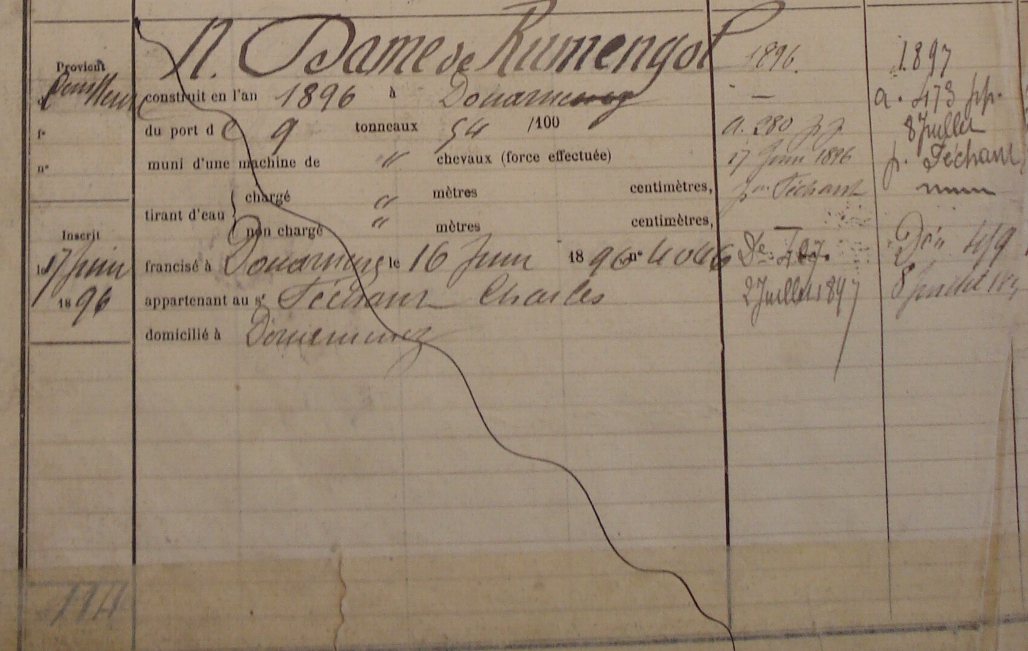 N. Dame de Rumengol
Provient
d
f°
n°
Inscrit
le 17 Juin
1896
construit en l'an 1896 à Douarnenez
du port de 9 tonneaux 54 /100
muni d'une machine de " chevaux (force effectuée)
tirant d'eau { chargé " mètres centimètres,
non chargé " mètres centimètres,
francisé à Douarnenez le 16 Juin 1896 n° 4046
appartenant au sr Téchant Charles
domicilié à Douarnenez
1896.
—
a. 280 pp
17 Juin 1896
pon Téchant
De
2 Juillet 1897
1897
a. 473 pp.
8 Juillet
p. Téchant
419